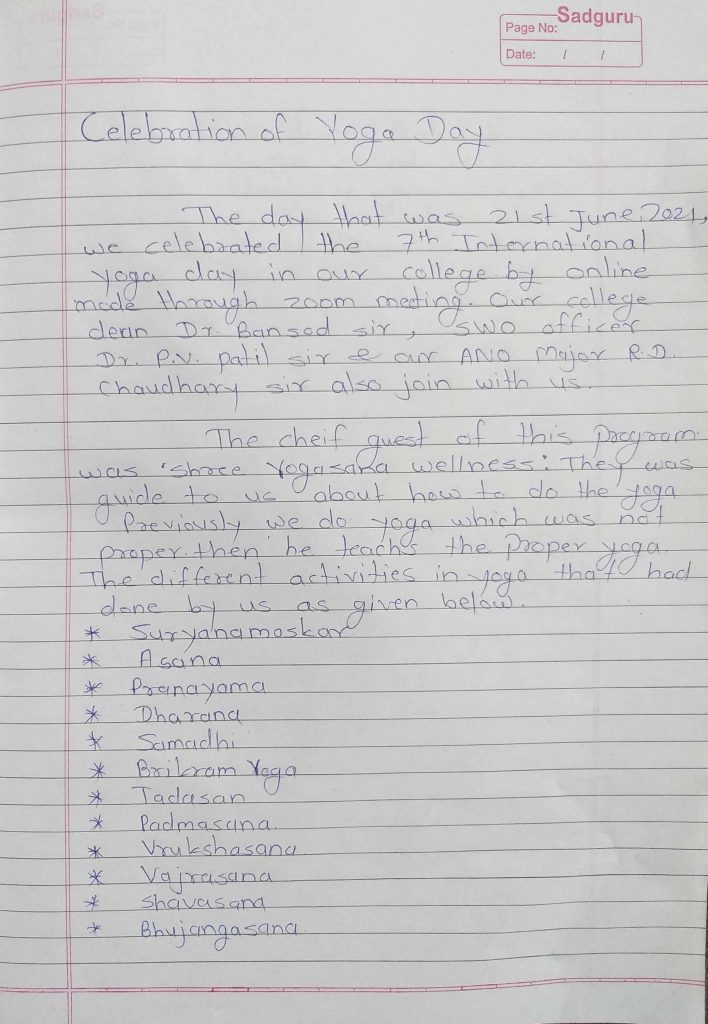 Sadguru
Page No:
Date: / /
Celebration of Yoga Day
The day that was 21st June, 2021,
we celebrated the 7th International
yoga day in our college by online
mode through zoom meeting. Our college
dean Dr. Bansod sir, SWO officer
Dr. P.V. patil sir & our ANO Major R.D.
Chaudhary sir also join with us.
The cheif guest of this program
was 'Shree Yogasana wellness'. They was
guide to us about how to do the yoga
Previously we do yoga which was not
proper. then he teachs the proper yoga.
The different activities in yoga that had
done by us as given below.
* Suryanamaskar
* Asana
* Pranayama
* Dharana
* Samadhi
* Brikram Yoga
* Tadasan
* Padmasana.
* Vrukshasana
* Vajrasana
* Shavasana
* Bhujangasana.